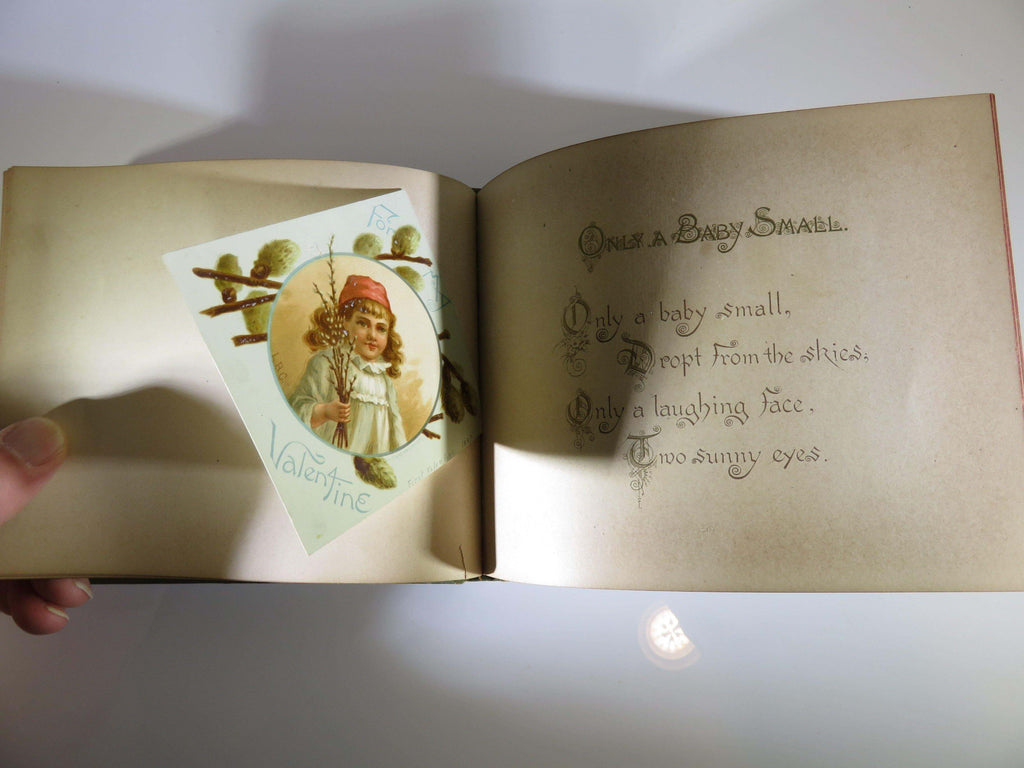 For
My
Valentine
ONLY A BABY SMALL.
Only a baby small,
Dropt from the skies;
Only a laughing face,
Two sunny eyes.